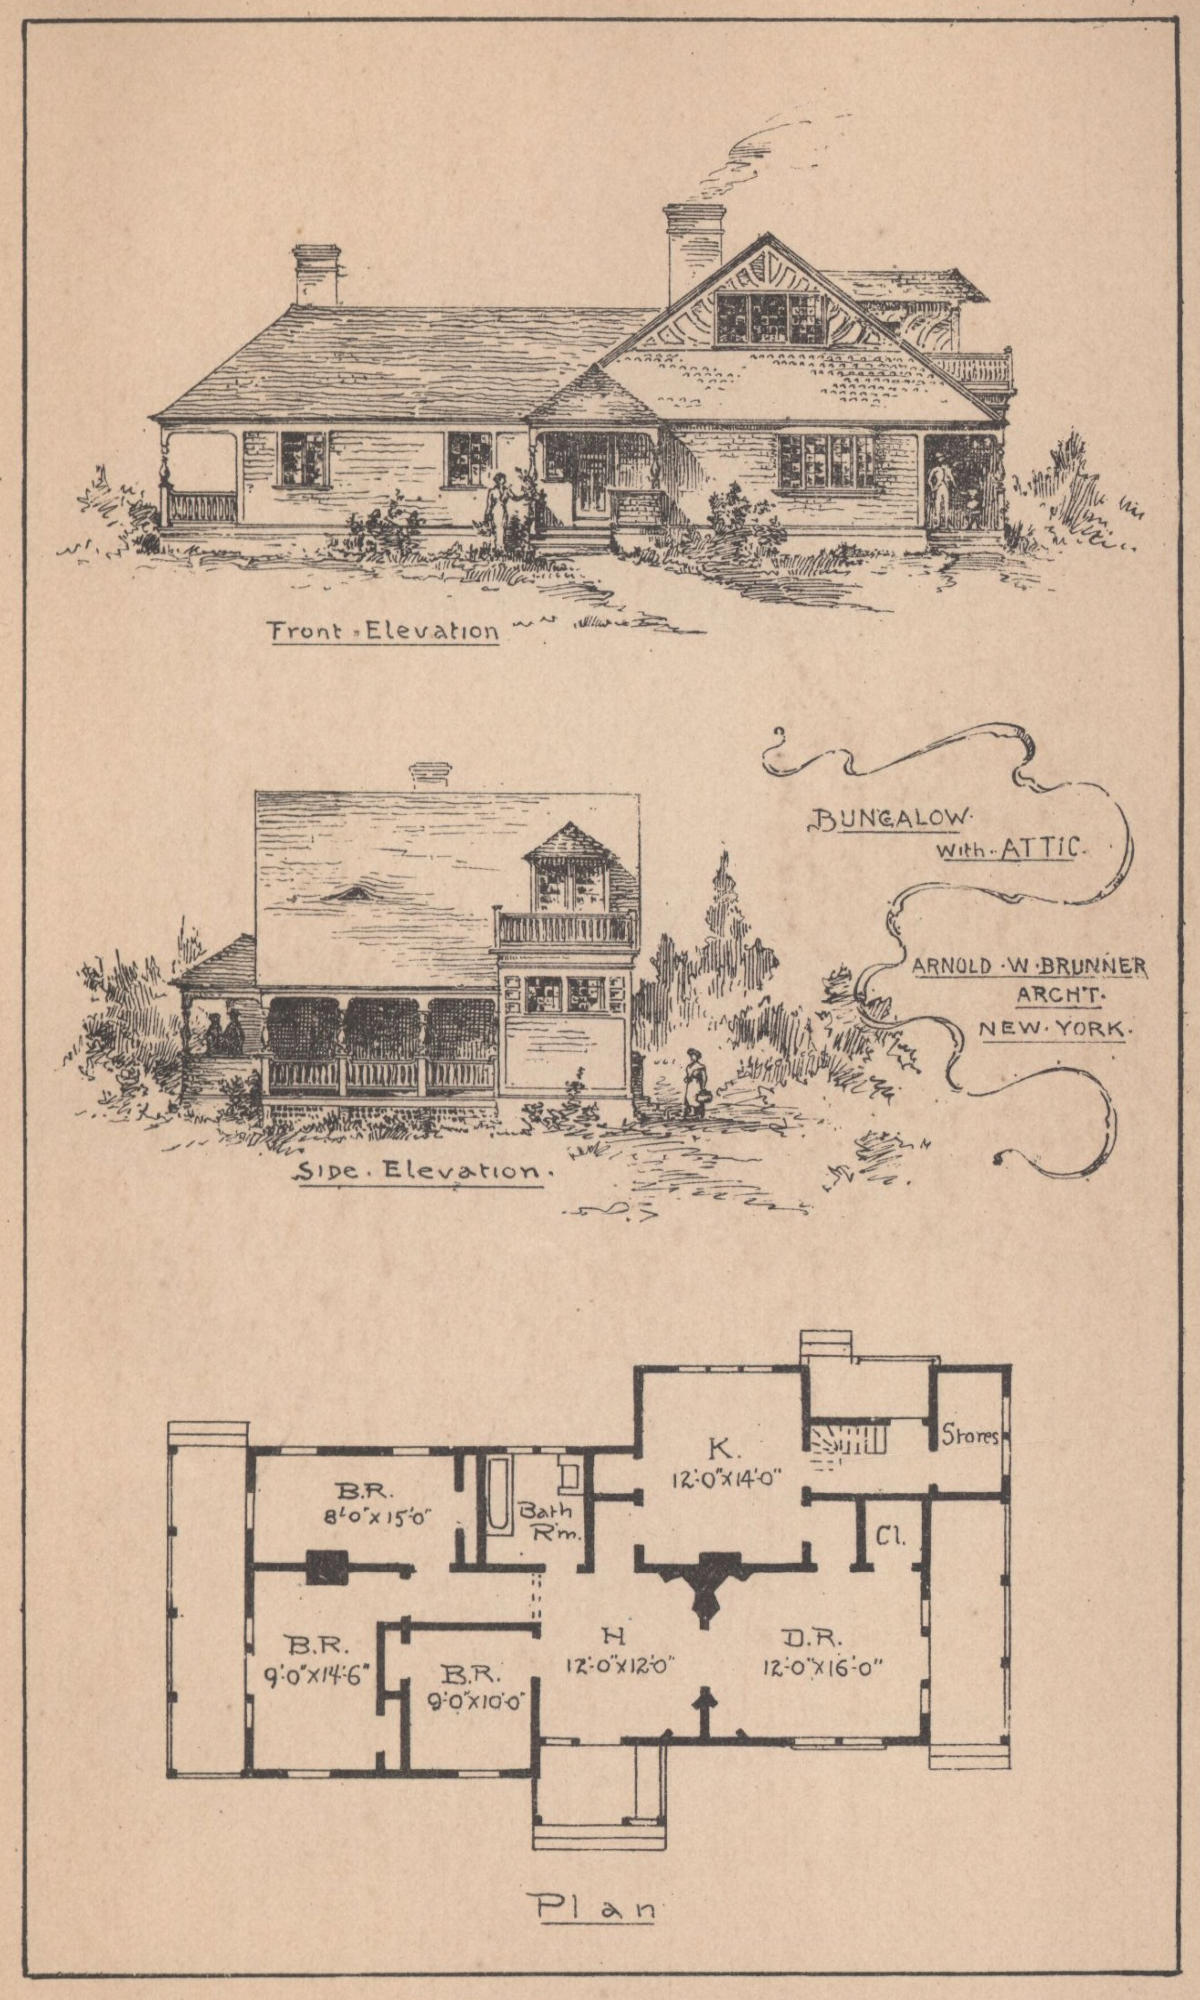 Front Elevation
BUNGALOW
with ATTIC.
ARNOLD W. BRUNNER
ARCH'T.
NEW YORK.
Side Elevation.
K.
12'-0"x14'-0"
Stores
B.R.
8'-0"x15'-0"
Bath
R'm.
Cl.
B.R.
9'-0"x14'-6"
B.R.
9'-0"x10'-0"
H
12'-0"x12'-0"
D.R.
12'-0"x16'-0"
Plan